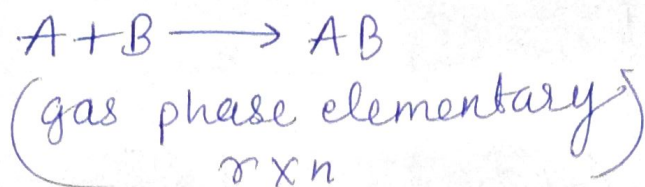 A + B ⟶ AB
(gas phase elementary)
rxn